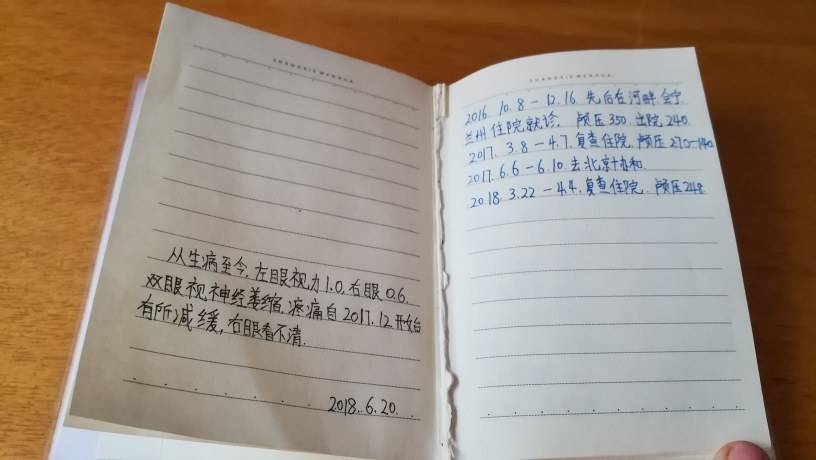 从生病至今，左眼视力1.0，右眼0.6，
双眼视神经萎缩，疼痛自2017.12开始
有所减缓，右眼看不清.
2018.6.20.
2016 10.8-12.16 先后在河畔 会宁
兰州住院就诊， 颅压350，出院240
2017. 3.8-4.7，复查住院，颅压270-140
2017.6.6-6.10.去北京协和.
2018 3.22-4.4.复查住院. 颅压248